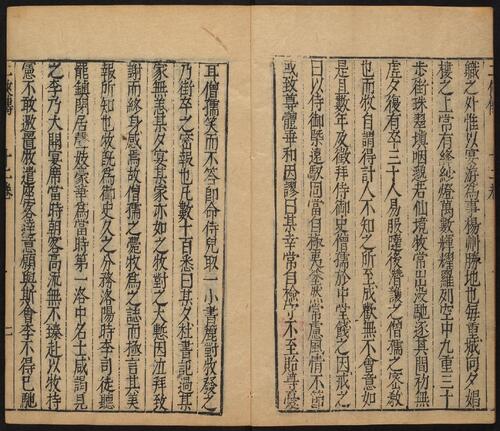 職之外惟以宴游為事楊州勝地也每重城向夕娼
樓之上常有絳紗燈萬數輝耀羅列空中九里三十
步街珠翠塡咽邈若仙境牧常出没馳逐其間初無
虛夕復有卒三十人易服隨後潛護之僧孺之密敎
也而牧自謂得計人不知之所至成歡無不會意如
是且數年及徵拜侍御史僧孺於中堂餞之因戒之
曰以侍御槩遠馭固當自極夷塗然常慮風情不節
或致尊體乖和因謬曰某幸常自檢守不至貽尊憂
耳僧孺笑而不答即命侍兒取一小書簏對牧發之
乃街卒之密報也凡數十百悉曰某夕杜書記過某
家無恙某夕宴某家亦如之牧對之大慙因泣拜致
謝而終身感焉故僧孺之薨牧為之誌而極言其美
報所知也牧旣為御史久之分務洛陽時李司徒聽
罷鎮閒居聲妓豪華為當時第一洛中名士咸謁見
之李乃大開宴席當時朝客高流無不臻赴以牧持
憲不敢邀置牧遣座客達意願與斯會李不得已馳